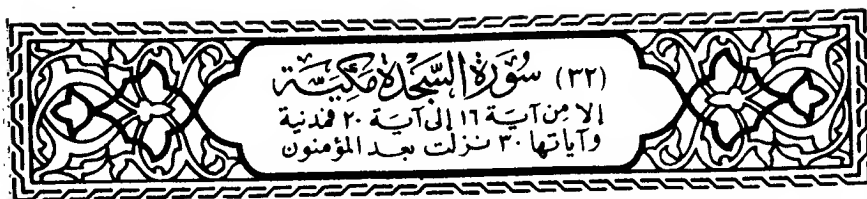 (٣٢) سُورَة السَّجْدَة مَكيَّة
إلا من آية ١٦ إلى آية ٢٠ فمدنية
وآياتها ٣٠ نزلت بعد المؤمنون